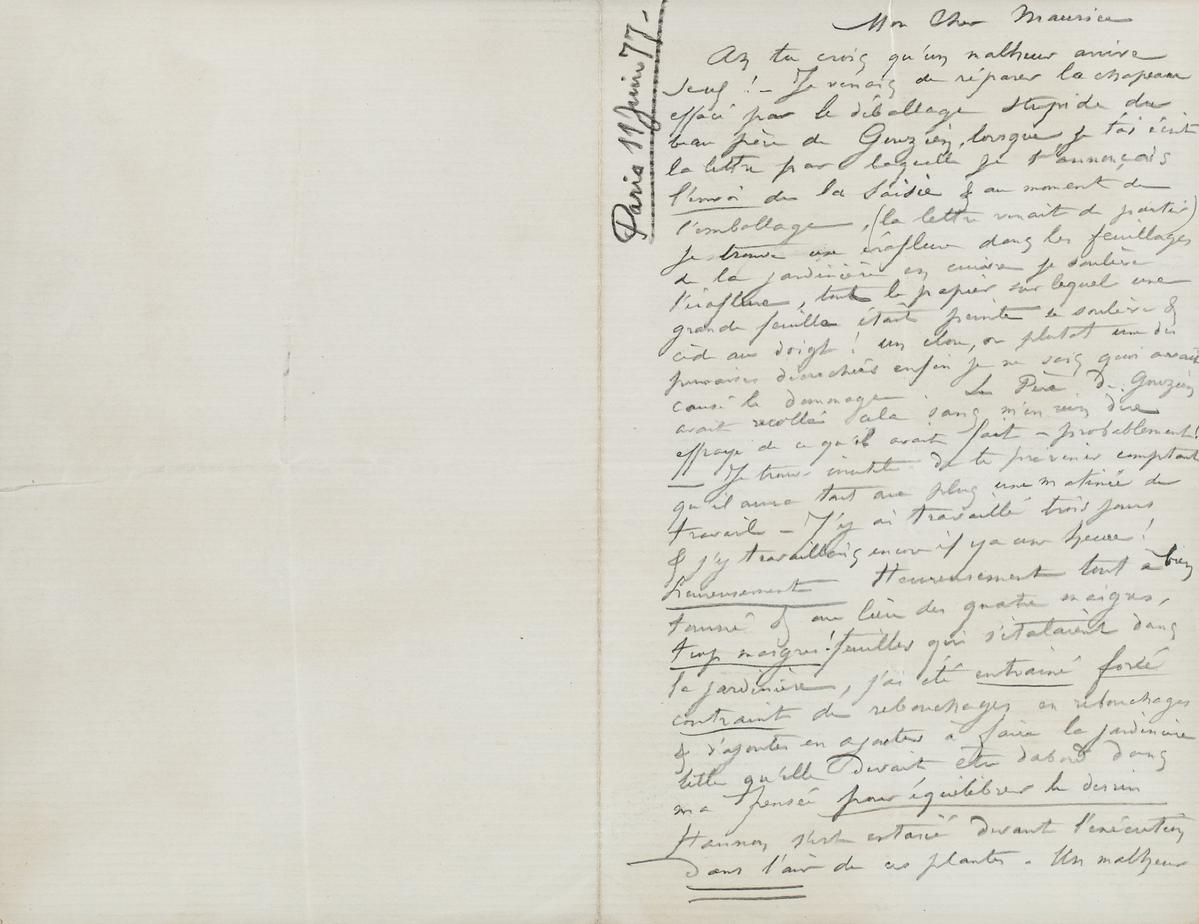 Paris 11 Juin 77-
Mon Cher Maurice
As tu crois qu'un malheur arrive
seul ! - Je venais de réparer le chapeau
effacé par le déballage stupide du
beau père de Gouzien, lorsque je t'ai écrit
la lettre par laquelle je t'annonçais
l'envoi de la Saisie & au moment de
l'emballage, (la lettre venait de partir)
Je trouve une éraflure dans les feuillages
de la jardinière en cuivre je soulève
l'éraflure, tout le papier sur lequel une
grande feuille était peinte se soulève &
cède au doigt ! un clou, ou plutot une des
punaises décrochées enfin je ne sais quoi avait
causé le dommage. Le Père de Gouzien
avait recollé cela sans m'en rien dire
effrayé de ce qu'il avait fait - probablement !
- Je trouve inutile de te prévenir comptant
qu'il aura tout au plus une matinée de
travail - J'y ai travaillé trois jours
& j'y travaillais encore il y a une heure !
heureusement Heureusement tout a bien
tourné & au lieu des quatre maigres,
trop maigres ! feuilles qui s'étalaient dans
la jardinière, j'ai été entrainé forcé
contraint de rebouchages en rebouchages
& d'ajoutes en ajoutes à faire la jardinière
telle qu'elle devait etre dabord dans
ma pensée pour équilibrer le dessin
Hannon s'est extasié devant l'exécution
dans l'air de ces plantes. Un malheur